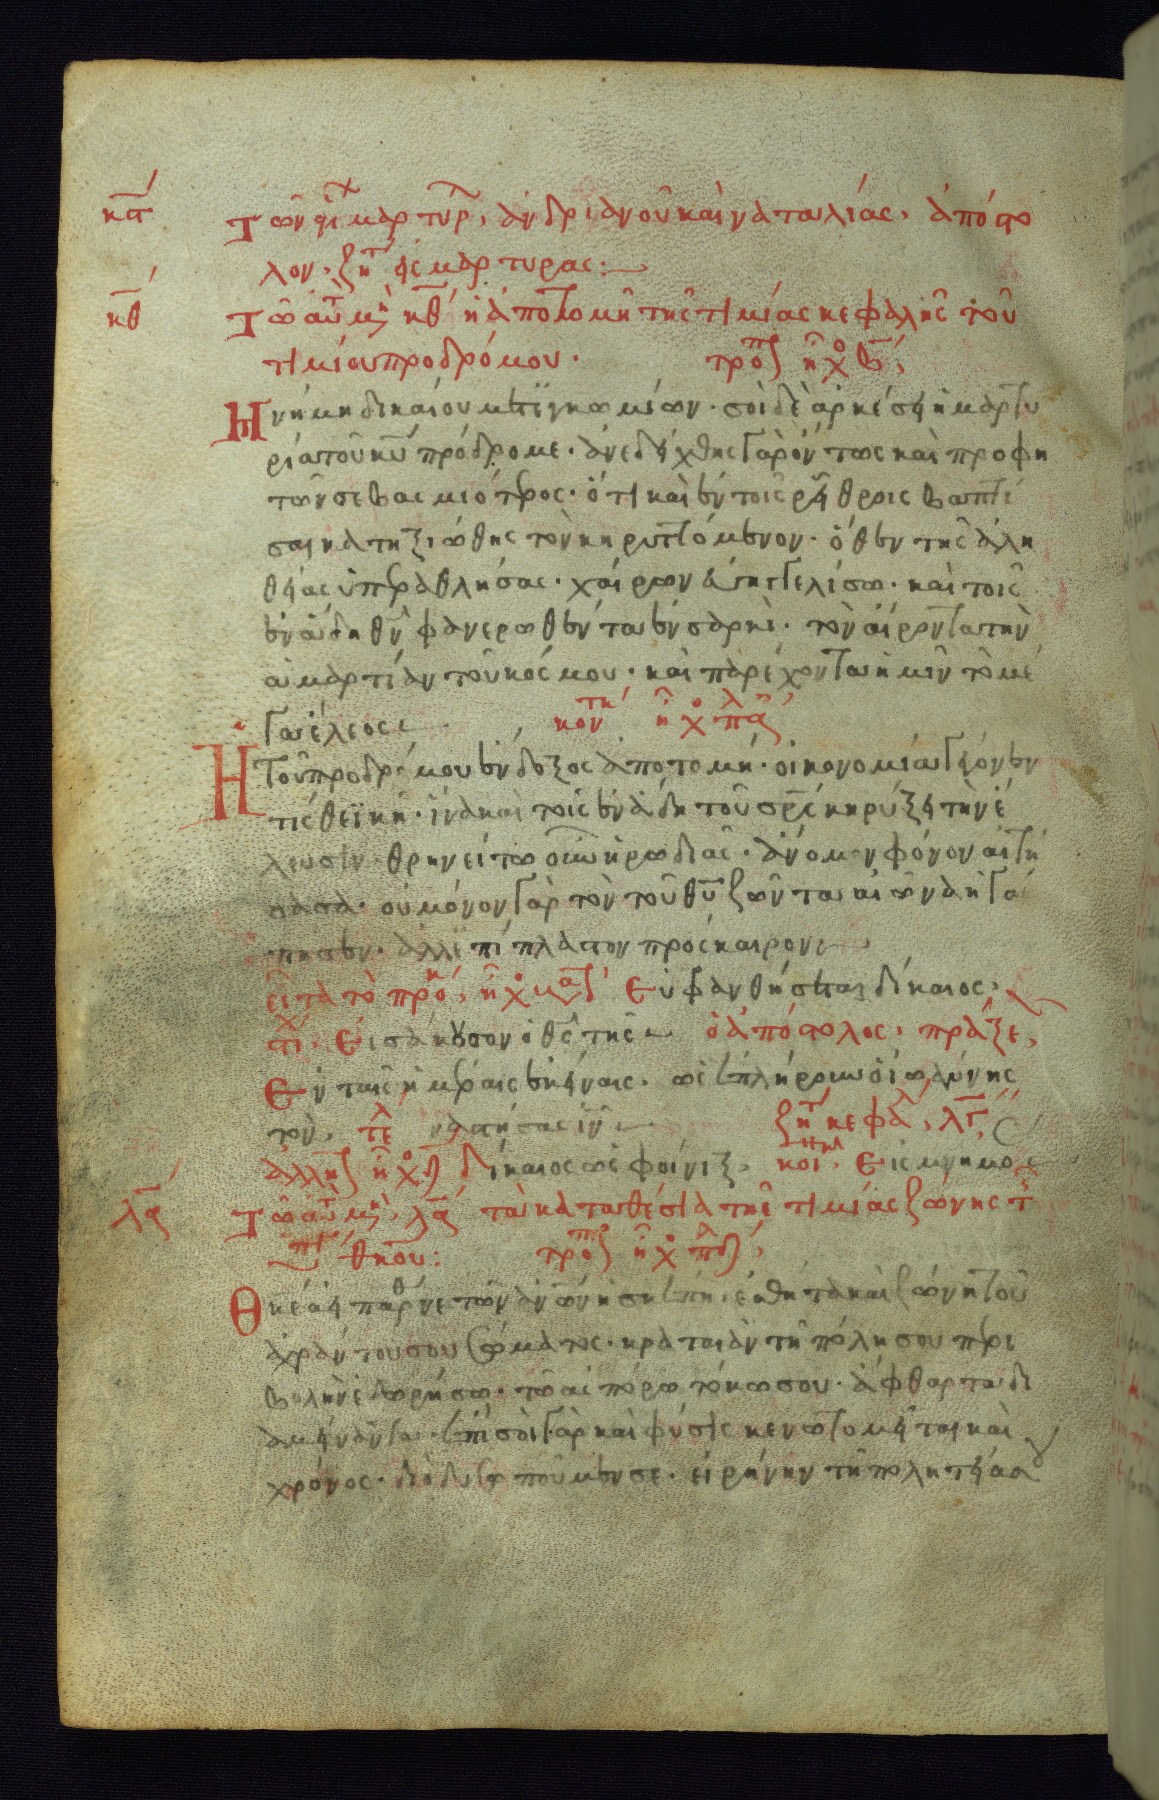 κϛ Τῶν ἁγί μαρτύρ, ἀνδριανοῦ καὶ ναταλίας, ἀπόστο
λον, ζητ εἰς μάρτυρας:
κθ Τῶ αὐτῶ μηνὶ κθ ἡ ἀποτομὴ τῆς τιμίας κεφαλῆς τοῦ
τιμίου προδρόμου. τροπ ἦχ β,
Μνήμη δικαίου μετ' ἐγκωμίων· σοὶ δὲ ἀρκέσει ἡ μαρτυ
ρία τοῦ κυ πρόδρομε· ἀνεδείχθης γὰρ ὄντως καὶ προφη
τῶν σεβασμιότερος· ὅτι καὶ ἐν τοῖς ρείθροις βαπτί
σαι κατηξιώθης τὸν κηρυττόμενον· ὅθεν τῆς ἀλη
θείας ὑπεραθλήσας· χαίρων εὐηγγελίσω· καὶ τοῖς
ἐν ἅδη θν φανερωθέντα ἐν σαρκί· τὸν αἴροντα τὴν
ἁμαρτίαν τοῦ κόσμου· καὶ παρέχοντα ἡμῖν τὸ μέ
γα ἔλεος κοντ ἦχ πλα
Ἡ τοῦ προδρόμου ἔνδοξος ἀποτομή· οἰκονομία γέγονέν
τις θεϊκή· ἵνα καὶ τοῖς ἐν ἅδη τοῦ σρς κηρύξει τὴν ἔ
λευσιν· θρηνείτω οὖν ἡρωδιάς· ἄνομον φόνον αἰτή
σασα· οὐ μόνον γὰρ τὸν τοῦ θυ ζῶντα αἰῶνα ἠγά
πησεν· ἀλλ' ἐπίπλαστον πρόσκαιρον
εἶτα τὸ προκ, ἦχ Εὐφρανθήσεται δίκαιος,
στι· Εἰσάκουσον ὁ θς τῆς ὁ ἀπόστολος, πράξε,
Ἐν ταῖς ἡμέραις ἐκείναις· ὡς ἐπλήρου ὁ ἰωάννης
τὸν, τε ζητ κεφα, λγ,
ἀλλη ἦχ Δίκαιος ὡς φοίνιξ, κοι, Εἰς μνημο
λα Τῶ αὐτῶ μη, λα τὰ καταθέσια τῆς τιμίας ζώνης τ
θκου: τροπ ἦχ πλ
Θκε ἀειπάρθενε τῶν ἀνων ἡ σκέπη· ἐσθῆτα καὶ ζώνην τοῦ
ἀχράντου σου σώματος· κραταιὰν τῆ πόλει σου περι
βολὴν ἐδωρήσω· τῶ ἀσπόρω τόκω σου· ἄφθαρτα δι
αμείναντα· ἐπὶ σοὶ γὰρ καὶ φύσις καινοτομεῖται καὶ
χρόνος· διὸ δυσωποῦμέν σε· εἰρήνην τῆ πολιτεία σου